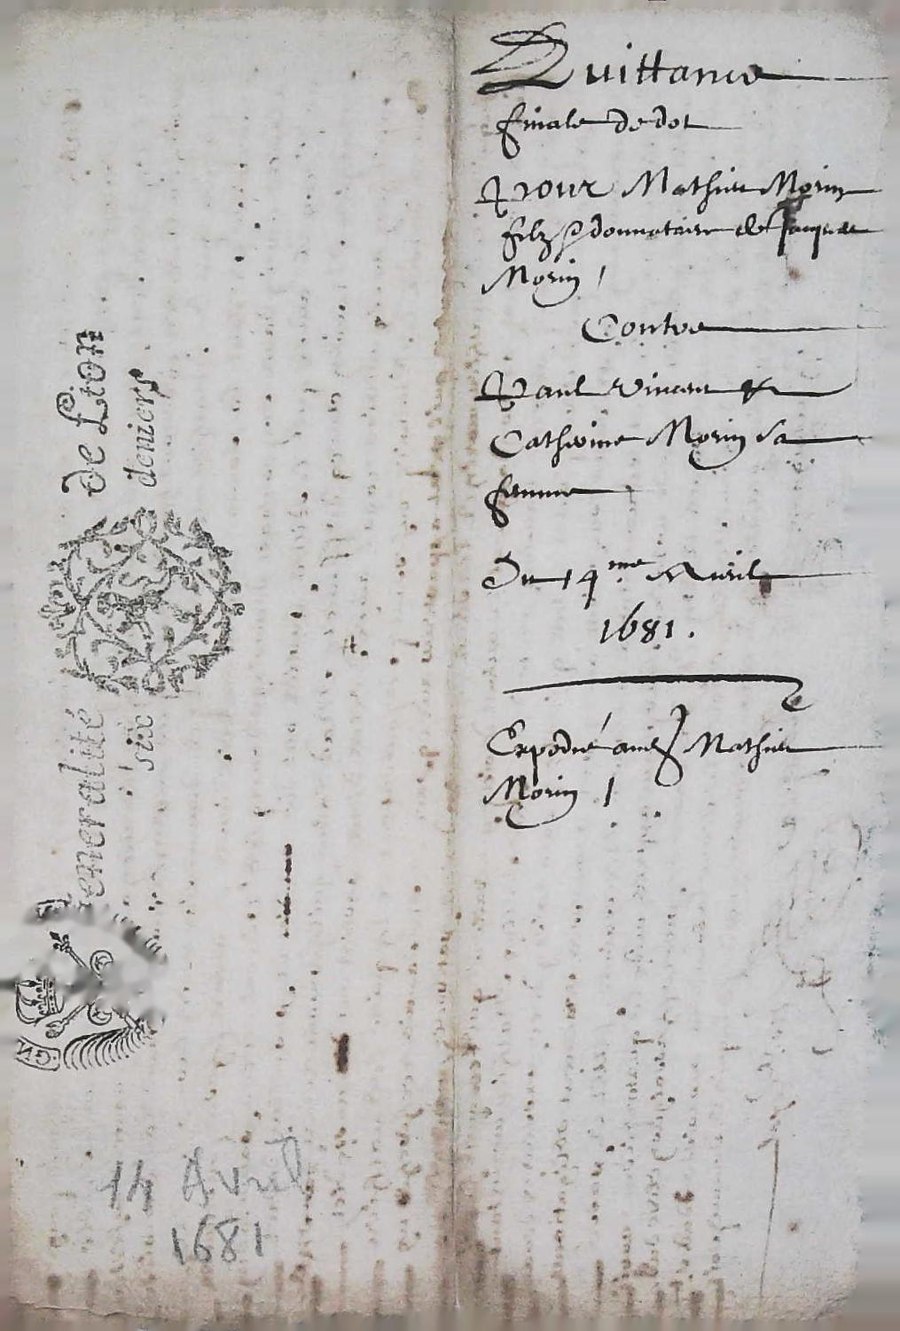 Quittance
finale de dot
Pour Mathieu Morin
filz & donnotaire de Jacques
Morin /
Contre
Paul Vincent &
Catherine Morin sa
femme
Du 14me Avril
1681.
Expedié aud Mathieu
Morin /
Generalité de Lion
six deniers
14 Avril
1681